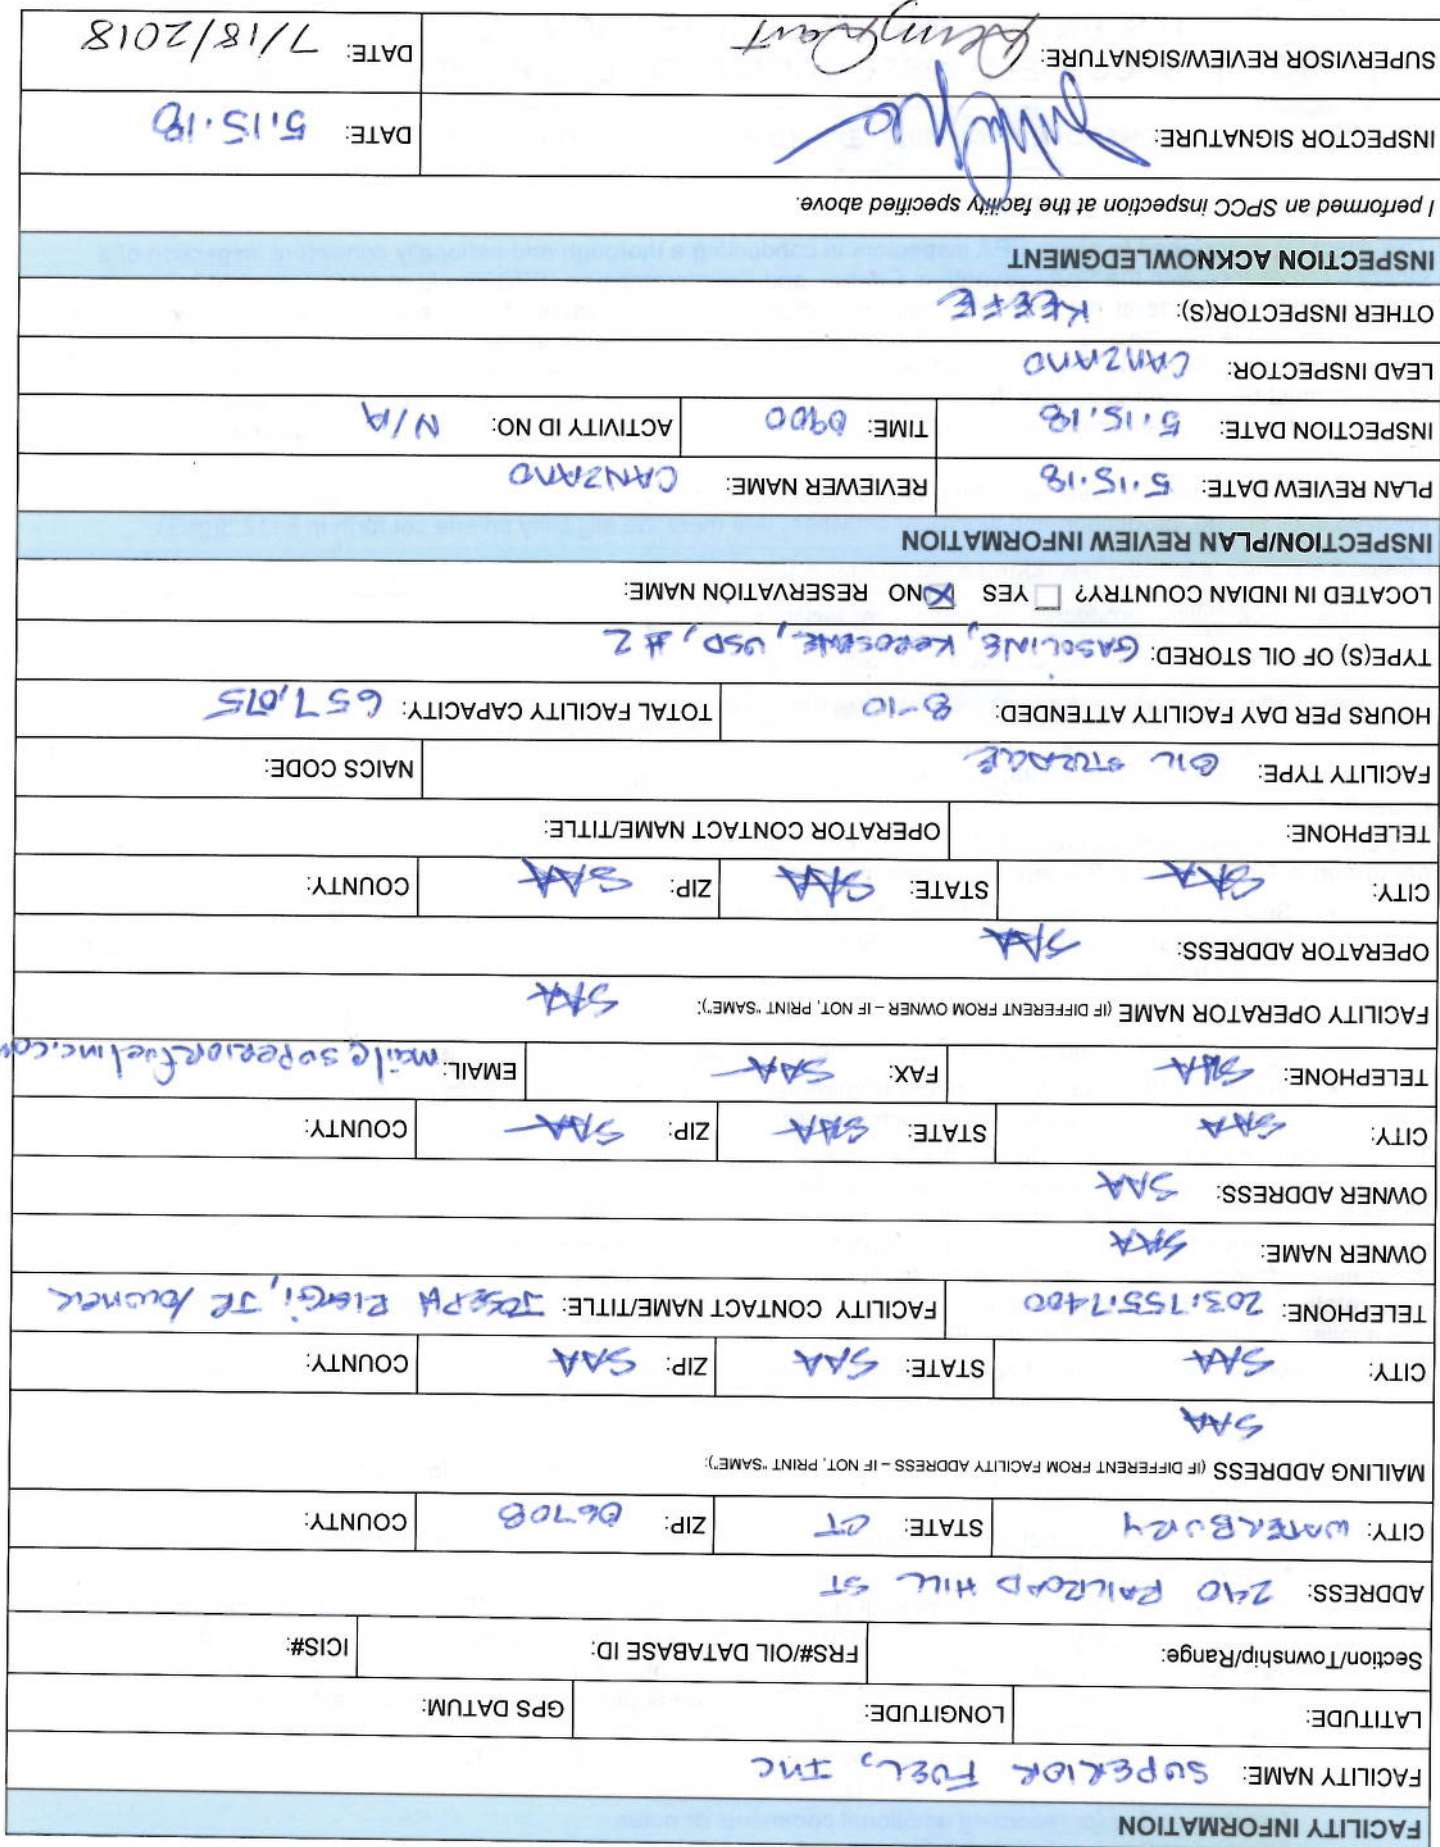 FACILITY INFORMATION
FACILITY NAME: SUPERIOR FUEL, INC
LATITUDE: LONGITUDE: GPS DATUM:
Section/Township/Range: FRS#/OIL DATABASE ID: ICIS#:
ADDRESS: 240 RAILROAD HILL ST
CITY: WATERBURY STATE: CT ZIP: 06708 COUNTY:
MAILING ADDRESS (IF DIFFERENT FROM FACILITY ADDRESS – IF NOT, PRINT "SAME"):
SAA
CITY: SAA STATE: SAA ZIP: SAA COUNTY:
TELEPHONE: 203.755.7400 FACILITY CONTACT NAME/TITLE: JOSEPH JR /OWNER
OWNER NAME: SAA
OWNER ADDRESS: SAA
CITY: SAA STATE: SAA ZIP: SAA COUNTY:
TELEPHONE: SAA FAX: SAA EMAIL:
FACILITY OPERATOR NAME (IF DIFFERENT FROM OWNER – IF NOT, PRINT "SAME"): SAA
OPERATOR ADDRESS: SAA
CITY: SAA STATE: SAA ZIP: SAA COUNTY:
TELEPHONE: OPERATOR CONTACT NAME/TITLE:
FACILITY TYPE: OIL STORAGE NAICS CODE:
HOURS PER DAY FACILITY ATTENDED: 8-10 TOTAL FACILITY CAPACITY: 657,075
TYPE(S) OF OIL STORED: GASOLINE, KEROSENE, USD, #2
LOCATED IN INDIAN COUNTRY? YES NO RESERVATION NAME:
INSPECTION/PLAN REVIEW INFORMATION
PLAN REVIEW DATE: 5.15.18 REVIEWER NAME: CANZANO
INSPECTION DATE: 5.15.18 TIME: 0900 ACTIVITY ID NO: N/A
LEAD INSPECTOR: CANZANO
OTHER INSPECTOR(S): KEEFE
INSPECTION ACKNOWLEDGMENT
I performed an SPCC inspection at the facility specified above.
INSPECTOR SIGNATURE: DATE: 5.15.18
SUPERVISOR REVIEW/SIGNATURE: DATE: 7/18/2018